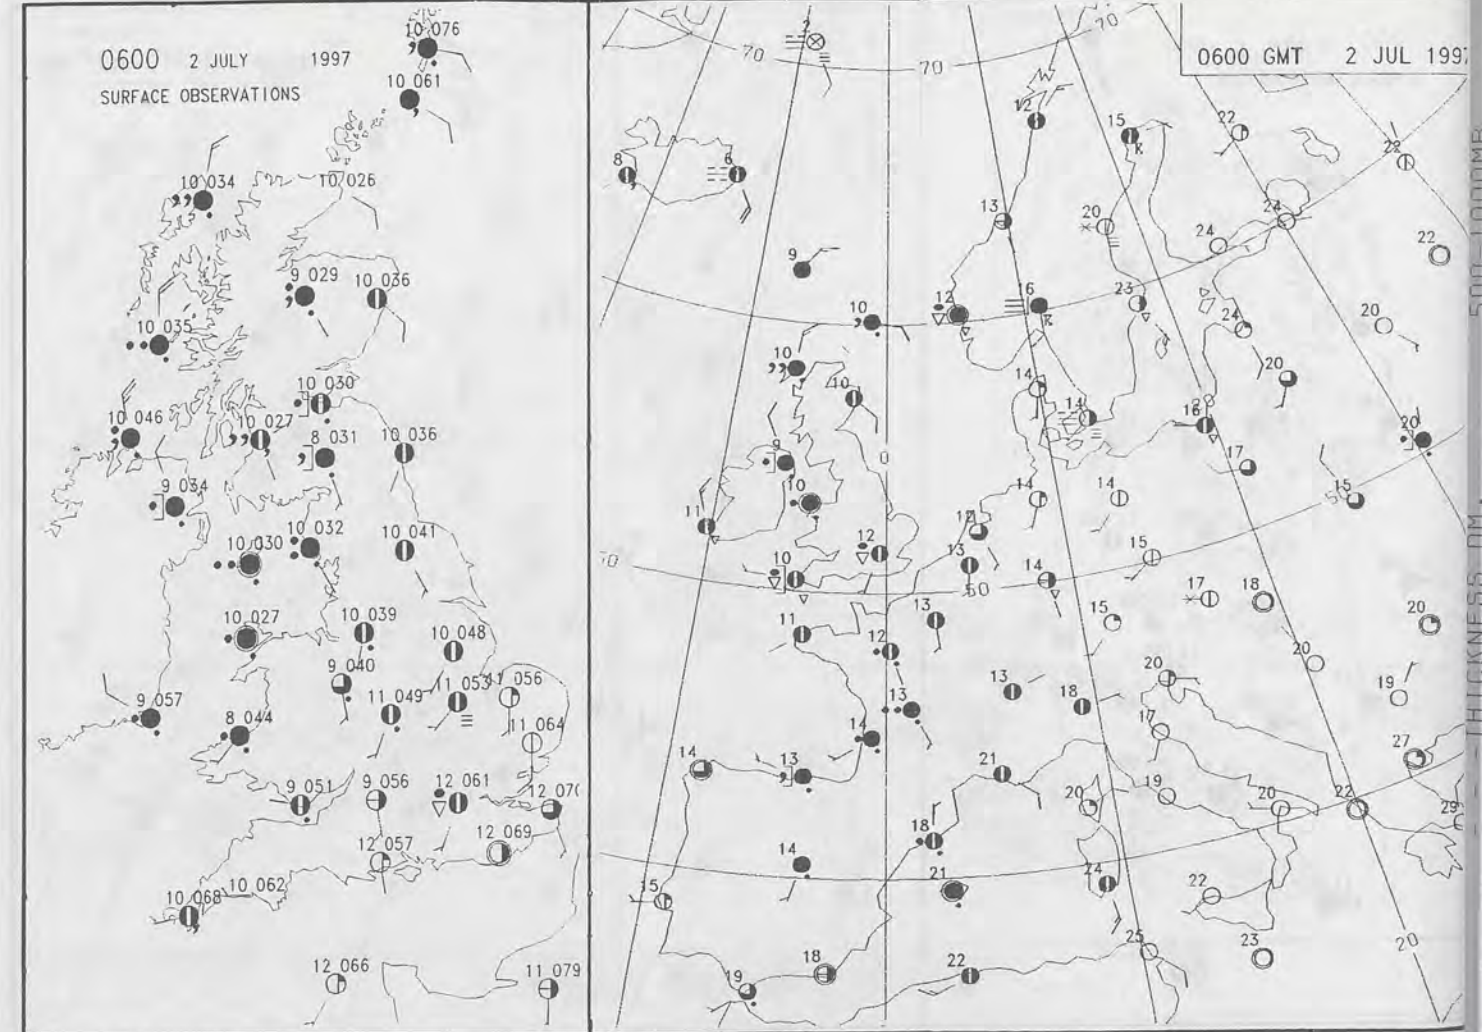 0600 2 JULY 1997
SURFACE OBSERVATIONS
10 076
10 061
10 034
10 026
9 029
10 036
10 035
10 030
10 046
10 027
8 031
10 036
9 034
10 032
10 030
10 041
10 027
10 039
10 048
9 040
11 049
11 053
11 056
9 057
8 044
11 064
9 051
9 056
12 061
12 070
12 057
12 069
10 068
10 062
12 066
11 079
0600 GMT 2 JUL 1997
2
70
70
70
12
15
22
22
8
6
13
20
24
24
22
9
12
16
23
10
24
20
10
14
20
10
14
16
20
9
0
17
10
14
14
15
11
12
12
13
15
50
10
14
50
17
18
11
13
15
20
12
20
13
20
18
19
13
14
17
27
14
13
21
20
19
20
22
29
18
14
21
24
15
22
25
23
20
18
19
22
THICKNESS DM
500-1000MB